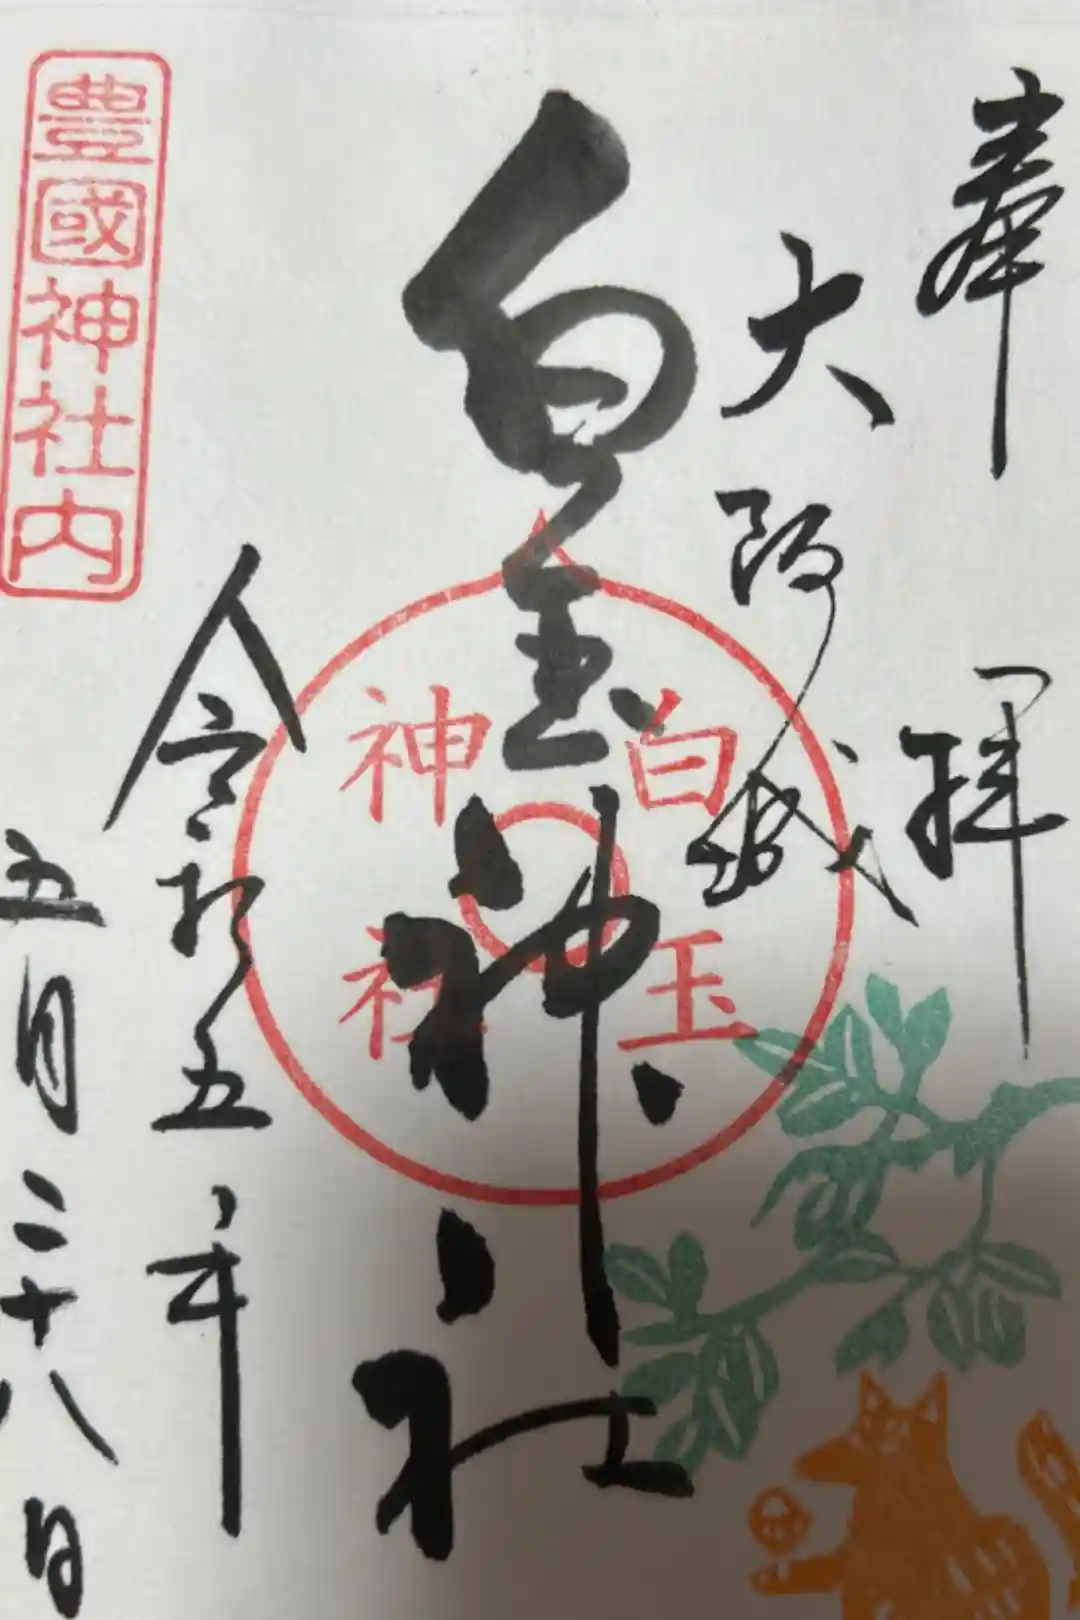 奉拝
大阪城
白玉神社
白玉
神社
令和五年
五月二十八日
豊國神社内